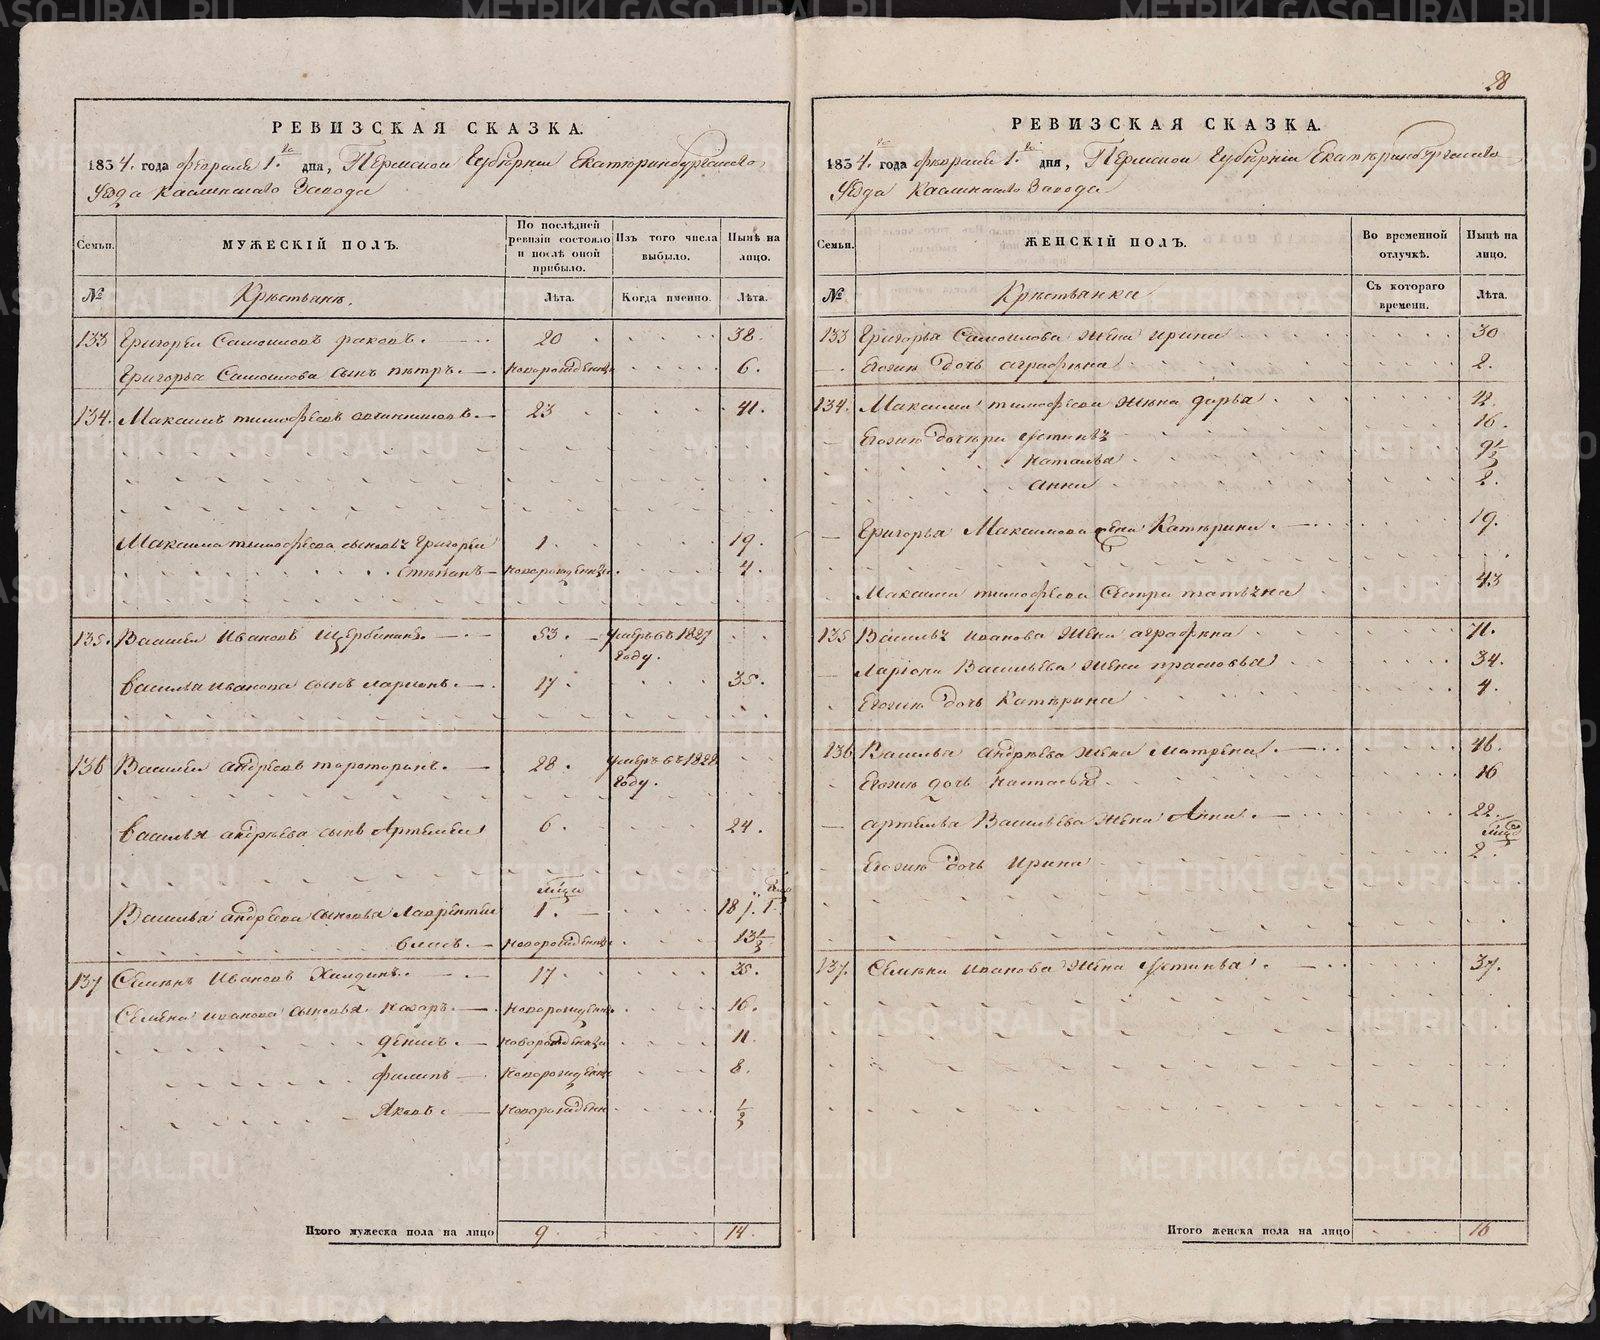 28
РЕВИЗСКАЯ СКАЗКА.
1834. года февраля 1.го дня, Пермской Губерніи Екатеринбургскаго
Уезда Каслинскаго Завода
Семьи.
МУЖЕСКІЙ ПОЛЪ.
По послѣдней ревизіи состояло и послѣ оной прибыло.
Изъ того числа выбыло.
Нынѣ на лицо.
№
Крестьянъ.
Лѣта.
Когда именно.
Лѣта.
133 Григорей Самоиловъ раковъ. 20 38.
Григорья Самоилова сынъ петръ. новорожденны 6.
134. Максимъ тимофеевъ овчинниковъ. 23 41.
Максима тимофеева сыновьz Григорей 1. 19.
степанъ новорожденны 4.
135. Василей Ивановъ Щербининъ. 53. умеръ въ 1827
году.
Василья Иванова сынъ ларионъ. 17. 35.
136 Василей андреевъ тороторинъ. 28. умеръ въ 1828
году.
Василья андреева сынъ Артемей 6. 24.
Василья андреева сыновья Лаврентей 1. 18
новорожденны 13 1/2
137 Семенъ Ивановъ Халдинъ. 17. 35.
Семена иванова сыновья Назаръ. новорожденны 16.
денисъ. новорожденны 11.
филипъ новорожденны 8.
Яковъ. новорожден 1/2
Итого мужеска пола на лицо 9 14.
РЕВИЗСКАЯ СКАЗКА.
1834.го года февраля 1.го дня, Пермской Губерніи Екатеринбергскаго
Уезда Каслинскаго Завода
Семьи.
ЖЕНСКІЙ ПОЛЪ.
Во временной отлучкѣ.
Нынѣ на лицо.
№
Крестьянка
Съ котораго времени.
Лѣта.
133 Григорья Самоилова жена ирина 30
Егожъ дочь аграфена 2.
134. Максима тимофеева жена дарья 42.
Егожъ дочери устиньz 16.
наталья 9 1/2
анна 2.
Григорья Максимова жена Катерина. 19.
Максима тимофеева сестра татьяна 43
135 Васильz иванова жена аграфена 71.
Ларіона Васильева жена прасковья 34.
Егожъ дочь Катерина 4.
136 Василья андреева жена Матрена. 46.
Егожъ дочь настасья 16
артемья Васильева жена Анна. 22.
Егожъ дочь Ирина 2.
137. Семена иванова жена устинья. 37.
Итого женска пола на лицо 16
METRIKI.GASO-URAL.RU